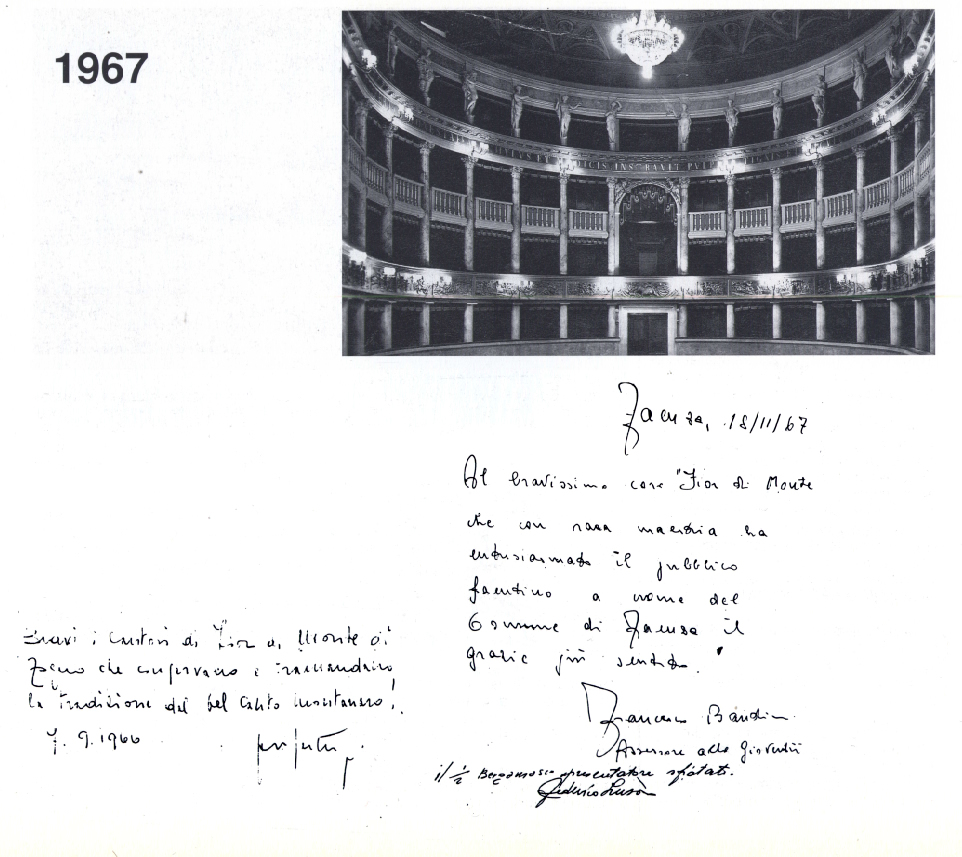 1967
Faenza, 18/11/67
Al bravissimo coro "Fior di Monte
che con rara maestria ha
entusiasmato il pubblico
faentino a nome del
Comune di Faenza il
grazie più sentito."
Francesco Bandin
Assessore alla Gioventù
il ½ Bergamasco presentatore sfiatato.
Bravi i Cantori di Fior di Monte di
Zeno che conservano e tramandano
la tradizione del bel canto montanaro!
7. 9. 1966